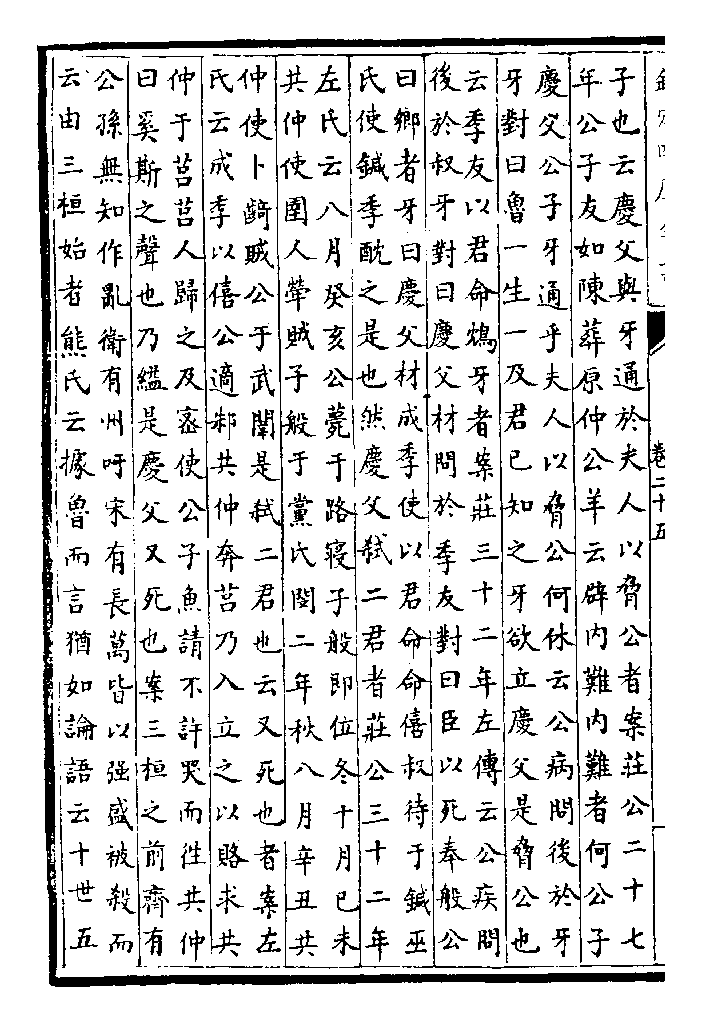 卷二十五
子也云慶父與牙通於夫人以脅公者案莊公二十七
年公子友如陳葬原仲公羊云辟内難内難者何公子
慶父公子牙通乎夫人以脅公何休云公病問後於牙
牙對曰魯一生一及君已知之牙欲立慶父是脅公也
云季友以君命鴆牙者案莊三十二年左傳云公疾問
後於叔牙對曰慶父材問於季友對曰臣以死奉般公
曰鄉者牙曰慶父材成季使以君命命僖叔待于鍼巫
氏使鍼季酖之是也然慶父弑二君者莊公三十二年
左氏云八月癸亥公薨于路寢子般即位冬十月已未
共仲使圉人犖賊子般于黨氏閔二年秋八月辛丑共
仲使卜齮賊公于武闈是弑二君也云又死也者案左
氏云成季以僖公適邾共仲奔莒乃入立之以賂求共
仲于莒莒人歸之及宻使公子魚請不許哭而徃共仲
曰奚斯之聲也乃縊是慶父又死也案三桓之前齊有
公孫無知作亂衛有州吁宋有長萬皆以强盛被殺而
云由三桓始者熊氏云據魯而言猶如論語云十世五